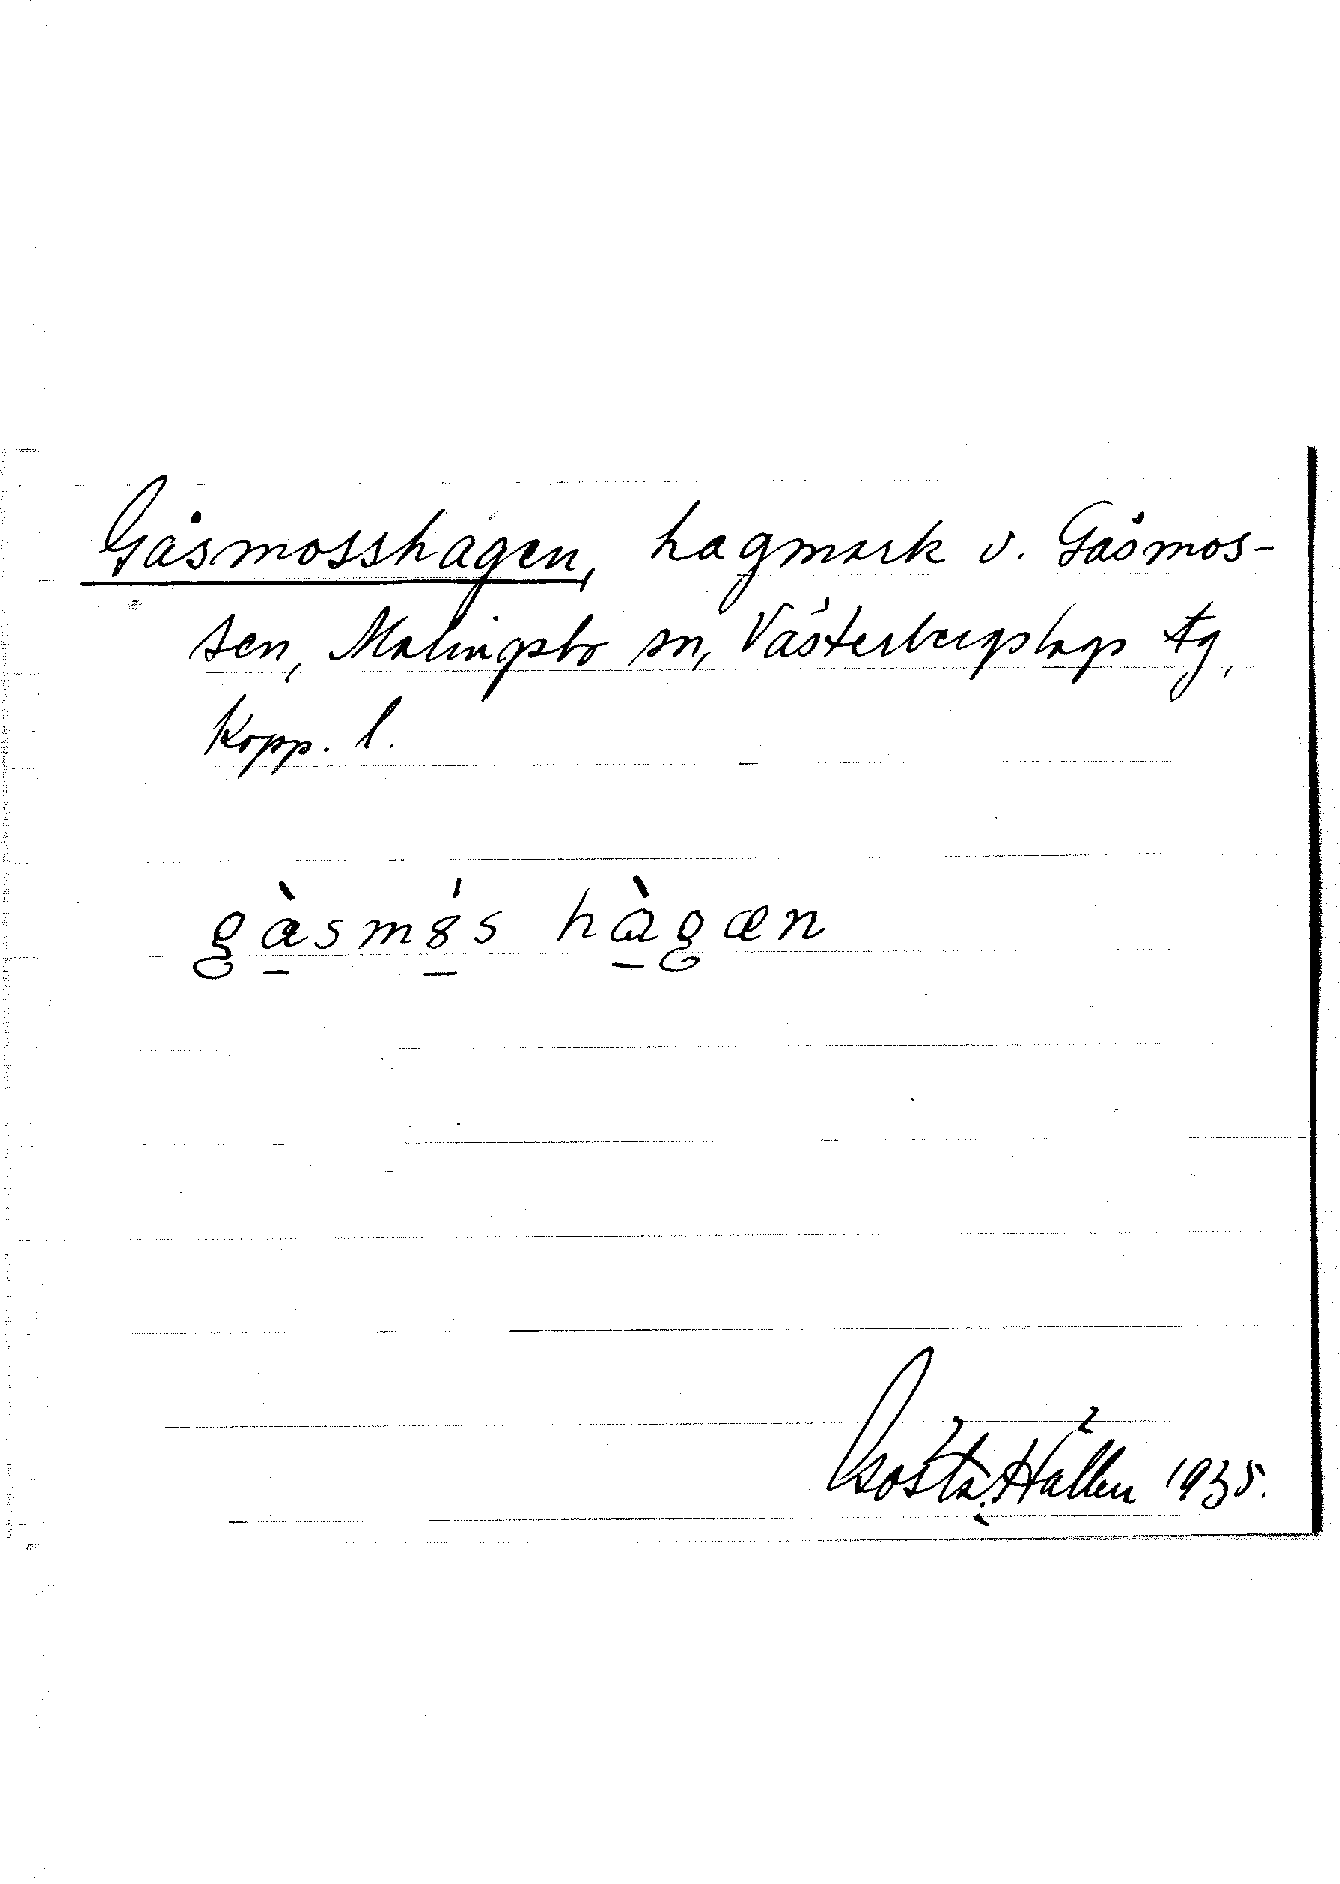 Gåsmosshagen, hagmark v. Gåsmos-
sen, Malingsbo sn, Västerbergslags tg,
Kopp. l.
gàsmós hàgæn
Gösta Hallén 1935.